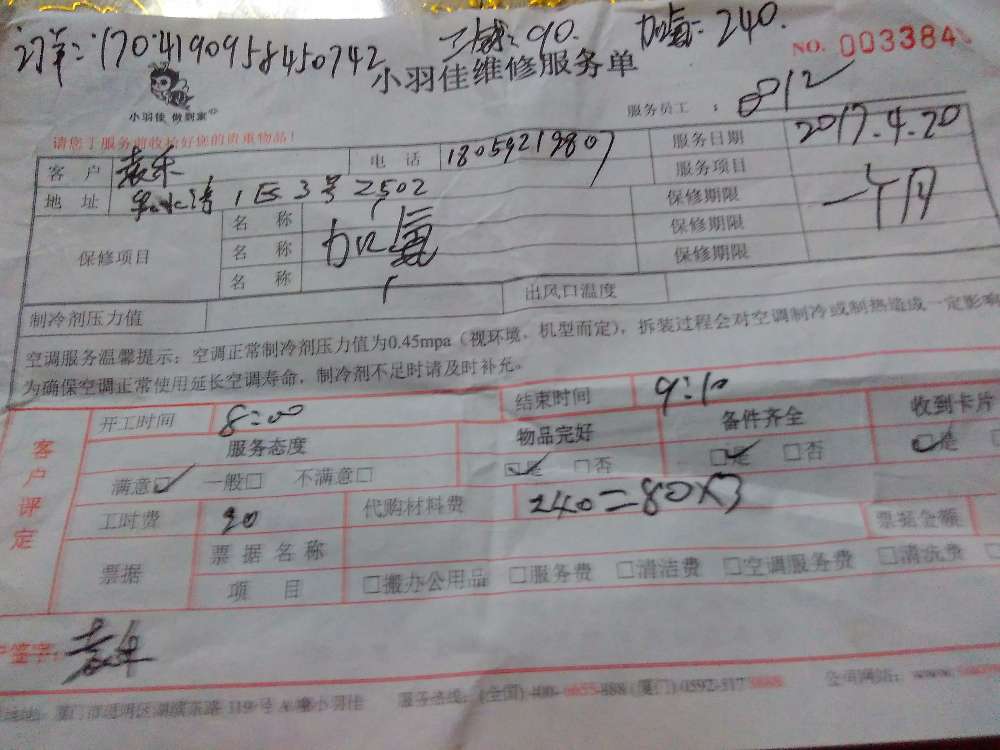 订单:1704190958450742 工时:90. 加氟:240.
小羽佳 做到家
小羽佳维修服务单
NO. 003384
服务员工: 0812
请您于服务前收拾好您的贵重物品!
客户 袁 电话 18059219807 服务日期 2017.4.20
地址 1区3号2502 服务项目
保修项目 名称 保修期限 一个月
名称 加氟 保修期限
名称 保修期限
制冷剂压力值 出风口温度
空调服务温馨提示:空调正常制冷剂压力值为0.45mpa(视环境、机型而定),拆装过程会对空调制冷或制热造成一定影响
为确保空调正常使用延长空调寿命,制冷剂不足时请及时补充。
客户评定
开工时间 8:00 结束时间 9:10
服务态度 物品完好 备件齐全 收到卡片
满意☑ 一般□ 不满意□ ☑是 □否 ☑是 □否 ☑是
工时费 90 代购材料费 240=80×3 票据金额
票据 票据名称
项目 □搬办公用品 □服务费 □清洁费 □空调服务费 □清洗费
签字: 袁
厦门市思明区湖滨东路319号A座小羽佳 服务热线:(全国)400-6655-888 (厦门)0592-517 公司网站:www.